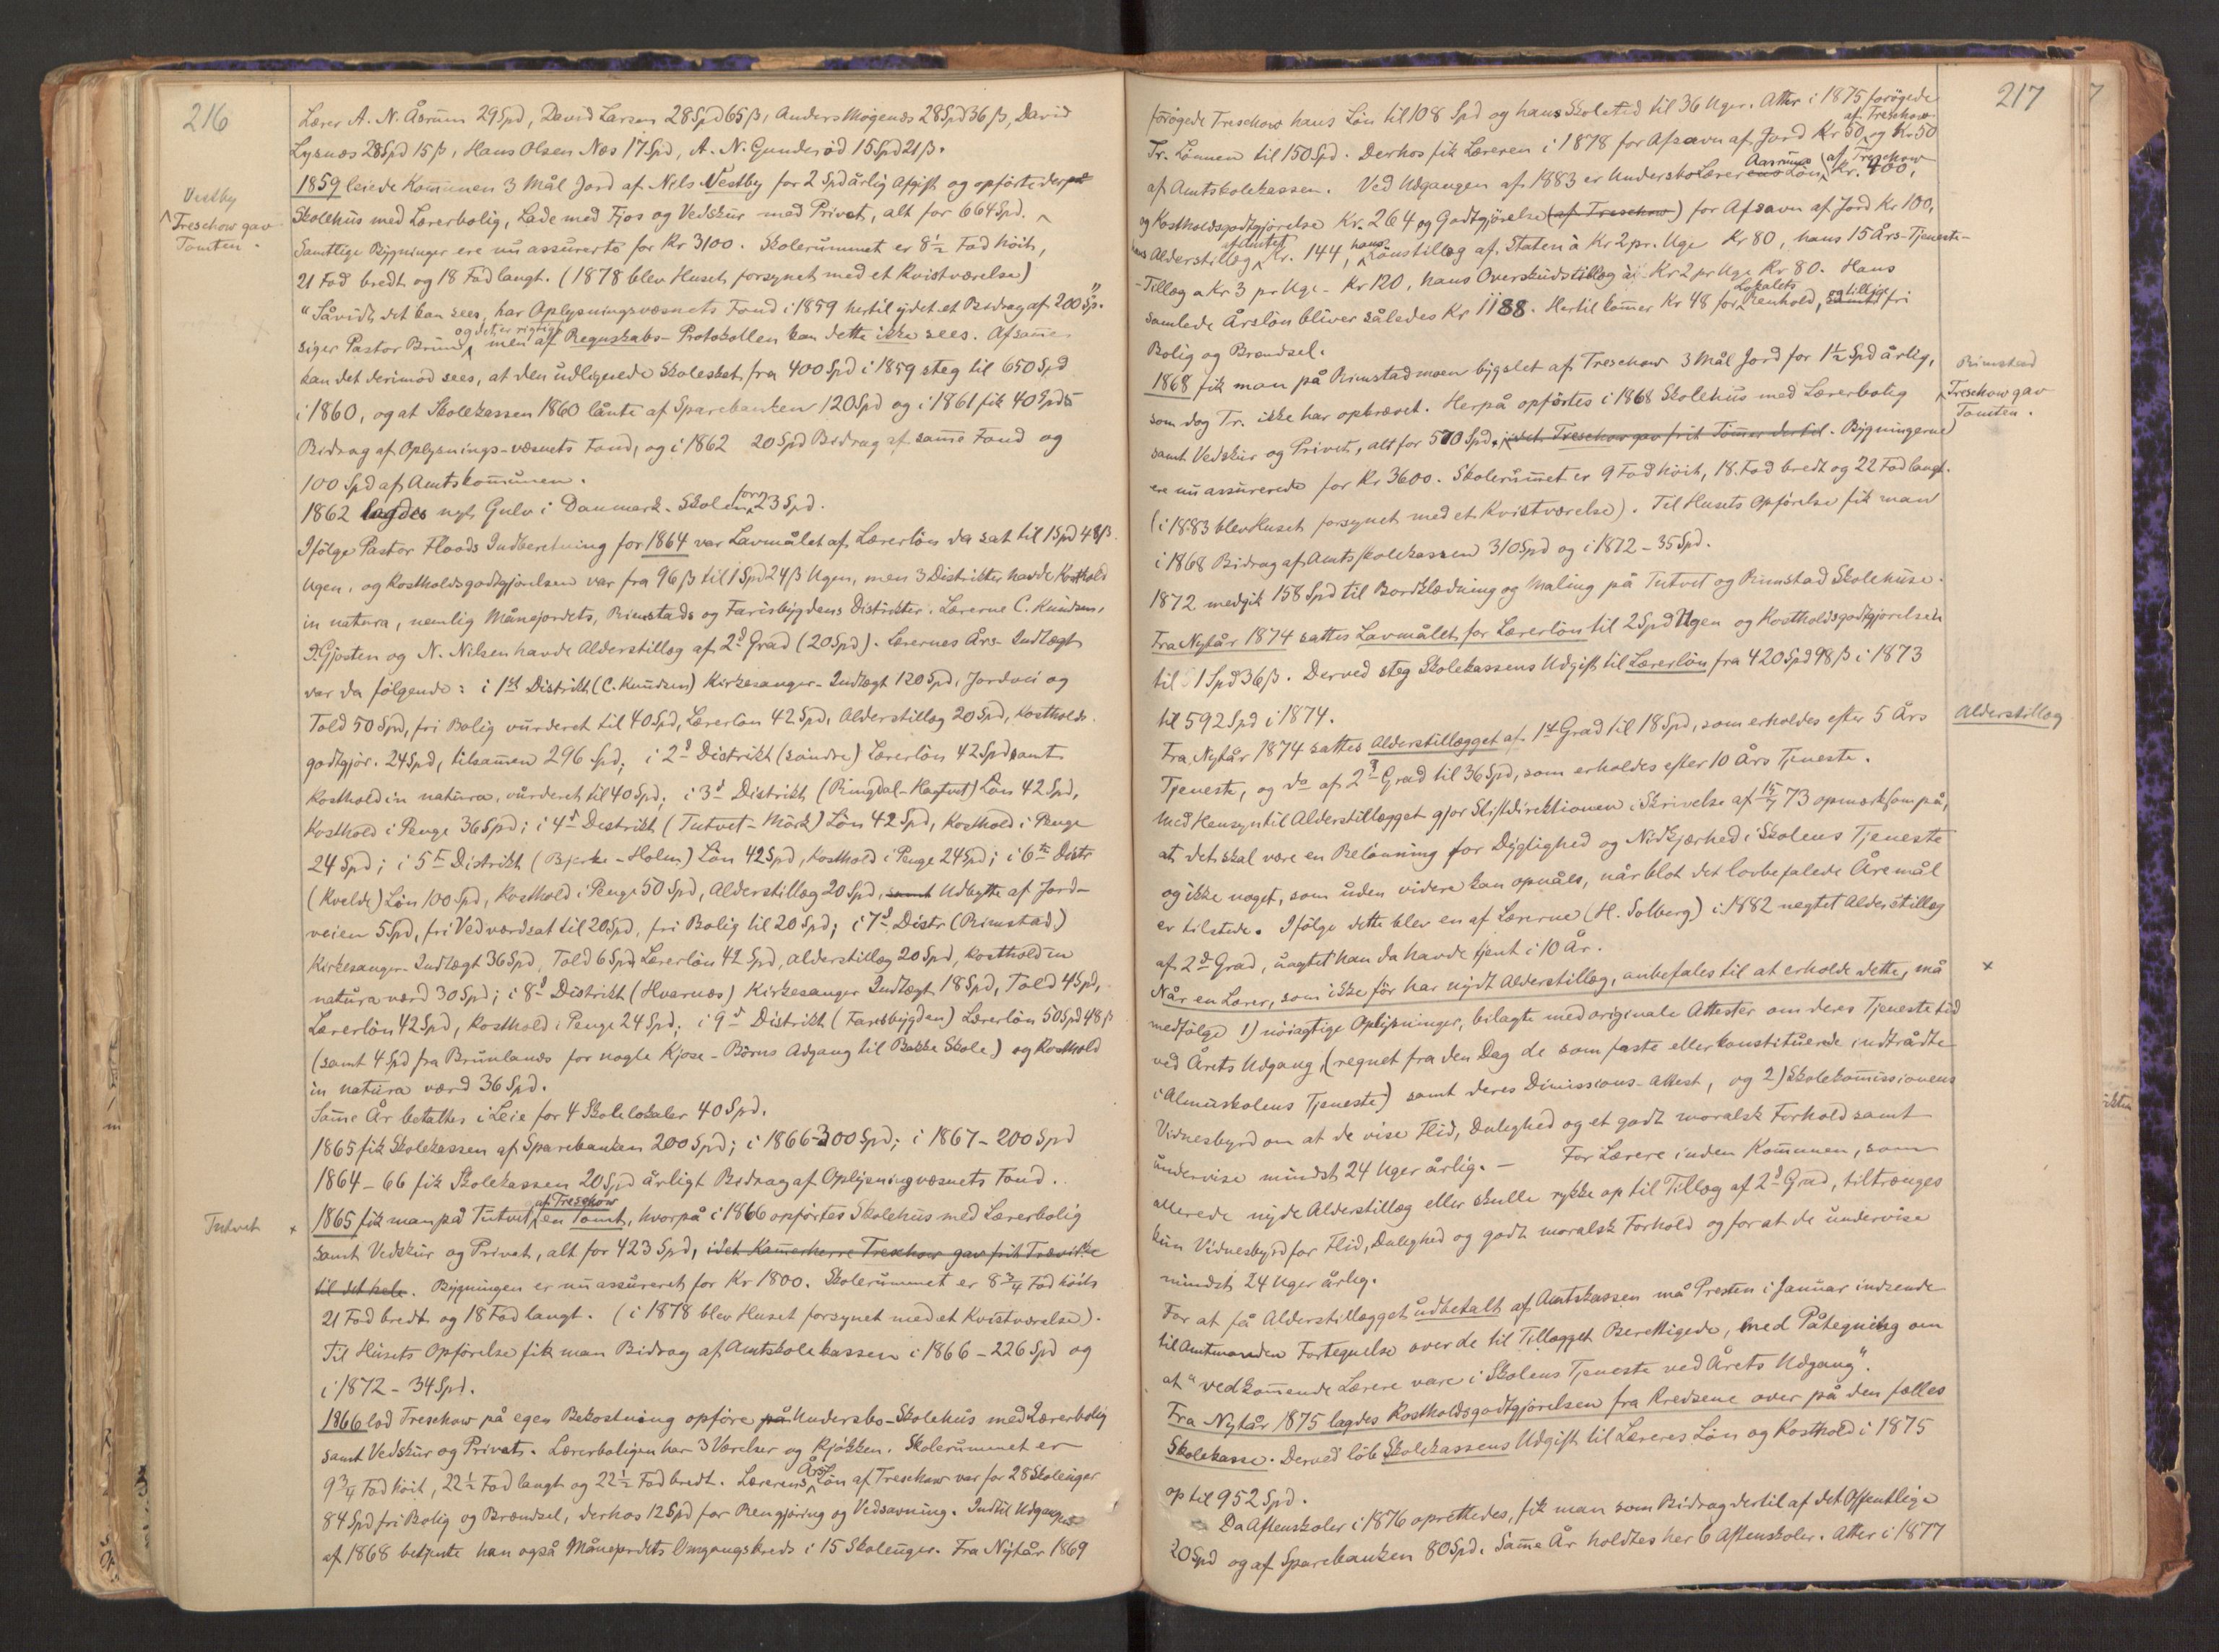 216
Lærer A. N. Åsrum 29 Spd, David Larsen 28 Spd 65 ß, Anders Mogenæs 28 Spd 36 ß, David
Lysnæs 28 Spd 15 ß, Hans Olsen Næs 17 Spd, A. N. Gunderöd 15 Spd 21 ß.
1859 leiede Kommunen 3 Mål Jord af Nils Vestby for 2 Spd årlig Afgift og opförte derpå
Vestby
Treschow gav
Tomten.
Skolehus med Lærerbolig, Lade med Fjös og Vedskur med Privet, alt for 664 Spd.
Samtlige Bygninger ere nu assurerte for Kr 3100. Skolerummet er 8½ Fod höit,
21 Fod bredt og 18 Fod langt. (1878 blev Huset forsynet med et Kvistværelse)
"Såvidt det kan sees, har Oplysningsvæsnets Fond i 1859 hertil ydet et Bidrag af 200 Sp."
siger Pastor Bruun, og det er rigtigt men af Regnskabs-Protokollen kan dette ikke sees. Af samme
kan det derimod sees, at den udlignede Skoleskat fra 400 Spd i 1859 steg til 650 Spd
i 1860, og at Skolekassen 1860 lånte af Sparebanken 120 Spd og i 1861 fik 40 Spds
Bidrag af Oplysnings-væsnets Fond, og i 1862 20 Spd Bidrag af samme Fond og
100 Spd af Amtskommunen.
1862 lagdes nyt Gulv i Danmark-Skolen for 23 Spd.
Ifölge Pastor Floods Indberetning for 1864 var Lavmålet af Lærerlön da sat til 1 Spd 48 ß
Ugen, og Kostholdsgodtgjörelsen var fra 96 ß til 1 Spd 24 ß Ugen, men 3 Distrikter havde Kosthold
in natura, nemlig Månejordets, Rimstads og Farisbygdens Distrikter. Lærerne C. Knudsen,
P. Gjosten og N. Nilsen havde Alderstillæg af 2d Grad (20 Spd). Lærernes Års-Indtægt
var da følgende: i 1st Distrikt (C. Knudsen) Kirkesanger-Indtægt 120 Spd, Jordvei og
Told 50 Spd, fri Bolig vurderet til 40 Spd, Lærerlön 42 Spd, Alderstillæg 20 Spd, Kostholds-
godtgjör. 24 Spd, tilsammen 296 Spd; i 2d Distrikt (söndre) Lærerlön 42 Spd samt
Kosthold in natura, vurderet til 40 Spd; i 3d Distrikt (Ringdal-Hagtvet) Lön 42 Spd,
Kosthold i Penge 36 Spd; i 4d Distrikt (Tutvet-Mörk) Lön 42 Spd, Kosthold i Penge
24 Spd; i 5te Distrikt (Bjerke-Holm) Lön 42 Spd, Kosthold i Penge 24 Spd; i 6te Distr
(Kvelde) Lön 100 Spd, Kosthold i Penge 50 Spd, Alderstillæg 20 Spd, samt Udbytte af Jord-
veien 5 Spd, fri Ved værdsat til 20 Spd, fri Bolig til 20 Spd; i 7d Distr (Rimstad)
Kirkesanger-Indtægt 36 Spd, Told 6 Spd, Lærerlön 42 Spd, Alderstillæg 20 Spd, Kosthold in
natura værd 30 Spd; i 8d Distrikt (Hvarnæs) Kirkesanger Indtægt 18 Spd, Told 4 Spd,
Lærerlön 42 Spd, Kosthold i Penge 24 Spd; i 9d Distrikt (Farisbygden) Lærerlön 50 Spd 48 ß
(samt 4 Spd fra Brunlanæs for nogle Kjose-Börns Adgang til Bakke Skole) og Kosthold
in natura værd 36 Spd.
Samme År betaltes i Leie for 4 Skolelokaler 40 Spd.
1865 fik Skolekassen af Sparebanken 200 Spd; i 1866-300 Spd; i 1867-200 Spd
1864-66 fik Skolekassen 20 Spd årligt Bidrag af Oplysningvæsnets Fond.
Tutvet
1865 fik man på Tutvet af Treschow en Tomt, hvorpå i 1866 opförtes Skolehus med Lærerbolig
samt Vedskur og Privet, alt for 423 Spd, idet Kammerherre Treschow gav frit Trævirke
til det hele. Bygningen er nu assureret for Kr 1800. Skolerummet er 8¾ Fod höit
21 Fod bredt og 18 Fod langt. (i 1878 blev Huset forsynet med et Kvistværelse).
Til Husets Opförelse fik man Bidrag af Amtskolekassen i 1866-226 Spd og
i 1872-34 Spd.
1866 lod Treschow på egen Bekostning opföre på Undersbo-Skolehus med Lærerbolig
samt Vedskur og Privet. Lærerboligen har 3 Værelser og Kjökken. Skolerummet er
9¾ Fod höit, 22½ Fod langt og 22½ Fod bredt. Lærerens Års Lön af Treschow var for 28 Skoleuger
84 Spd fri Bolig og Brændsel, derhos 12 Spd for Rengjöring og Vedsavning. Indtil Udgangen
af 1868 betjente han også Månejordets Omgangskreds i 15 Skoleuger. Fra Nytår 1869
217
forögede Treschow hans Lön til 108 Spd og hans Skoletid til 36 Uger. Atter i 1875 forögede
Tr. Lönnen til 150 Spd. Derhos fik Læreren i 1878 for Afsavn af Jord Kr 50 af Treschow og Kr 50
af Amtskolekassen. Ved Udgangen af 1883 er Undersbo Lærerens Aasrums Lön af Treschow Kr. 400,
og Kostholdsgodtgjörelse Kr. 264 og Godtgjörelse (af Treschow) for Afsavn af Jord Kr 100,
hans Alderstillæg afdintet Kr. 144, hans Lönstillæg af Staten à Kr 2 pr. Uge Kr 80, hans 15 Års-Tjeneste-
-Tillæg a Kr 3 pr Uge - Kr 120, hans Overskudstillæg ài Kr 2 pr Uge Kr 80. Hans
samlede Årslön bliver således Kr 1188. Hertil kommer Kr 48 for Lokalets Renhold, samt og tillige fri
Bolig og Brændsel.
1868 fik man på Rimstadmoen bygslet af Treschow 3 Mål Jord for 1½ Spd årlig,
Rimstad
Treschow gav
Tomten.
som dog Tr. ikke har opkrævet. Herpå opförtes i 1868 Skolehus med Lærerbolig
samt Vedskur og Privet, alt for 570 Spd, idet Treschow gav frit Tömmer dertil. Bygningerne
ere nu assurerede for Kr 3600. Skolerummet er 9 Fod höit, 18 Fod bredt og 22 Fod langt.
(i 1883 blev Huset forsynet med et Kvistværelse). Til Husets Opförelse fik man
i 1868 Bidrag af Amtsskolekassen 310 Spd og i 1872-35 Spd.
1872 medgik 158 Spd til Bordklædning og Maling på Tutvet og Rimstad Skolehuse.
Fra Nytår 1874 sattes Lavmålet for Lærerlön til 2 Spd Ugen og Kostholdsgodtgjörelsen
til 1 Spd 36 ß. Derved steg Skolekassens Udgift til Lærerlön fra 420 Spd 98 ß i 1873
til 592 Spd i 1874.
Alderstillæg
Fra Nytår 1874 sattes Alderstillægget af 1st Grad til 18 Spd, som erholdes efter 5 Års
Tjeneste, og do af 2d Grad til 36 Spd, som erholdes efter 10 Års Tjeneste.
Med Hensyn til Alderstillægget gjör Stiftdirektionen i Skrivelse af 15/7 73 opmærksom på,
at det skal være en Belönning for Dygtighed og Nidkjærhed i Skolens Tjeneste
og ikke noget, som uden videre kan opnåes, når blot det lovbefalede Åremål
er tilstede. Ifölge dette blev en af Lærerne (H. Solberg) i 1882 negtet Alderstillæg
af 2d Grad, uagtet han da havde tjent i 10 År.
Når en Lærer, som ikke för har nydt Alderstillæg, anbefales til at erholde dette, må
medfölge 1) nöiagtige Oplysninger, bilagte med originale Attester om deres Tjenestetid
ved Årets Udgang, (regnet fra den Dag de som faste eller konstituerede indtrådte
i Almuskolens Tjeneste) samt deres Dimissions-Attest, og 2) Skolekommissionens
Vidnesbyrd om at de vise Flid, Duelighed og et godt moralsk Forhold samt
undervise mindst 24 Uger årlig. — For Lærere inden Kommunen, som
allerede nyde Alderstillæg eller skulle rykke op til Tillæg af 2d Grad, tiltrænges
kun Vidnesbyrd for Flid, Duelighed og godt moralsk Forhold og for at de undervise
mindst 24 Uger årlig.
For at få Alderstillægget udbetalt af Amtskassen må Presten i Januar indsende
til Amtmanden Fortegnelse over de til Tillægget Berettigede, med Påtegning om
at "vedkommende Lærere vare i Skolens Tjeneste ved Årets Udgang".
Fra Nytår 1875 lagdes Kostholdsgodtgjörelsen fra Kredsene over på den fælles
Skolekasse. Derved löb Skolekassens Udgift til Læreres Lön og Kosthold i 1875
op til 952 Spd.
Da Aftenskoler i 1876 oprettedes, fik man som Bidrag dertil af det Offentlige
20 Spd og af Sparebanken 80 Spd. Samme År holdtes her 6 Aftenskoler. Atter i 1877